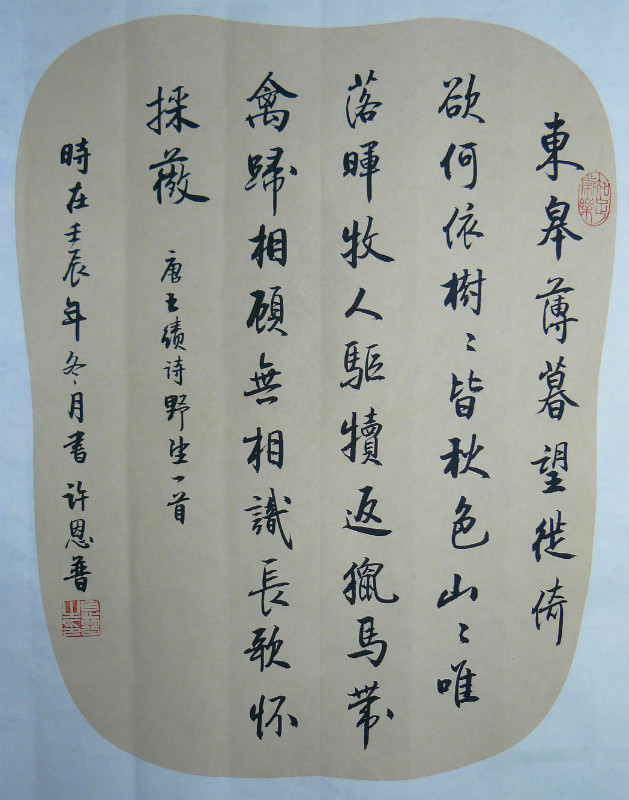 東皋薄暮望徙倚
欲何依樹〻皆秋色山〻唯
落暉牧人驅犢返獵馬帶
禽歸相顧無相識長歌怀
採薇
唐王績诗野望一首
時在壬辰年冬月書许恩普
知足常樂
恩普之印